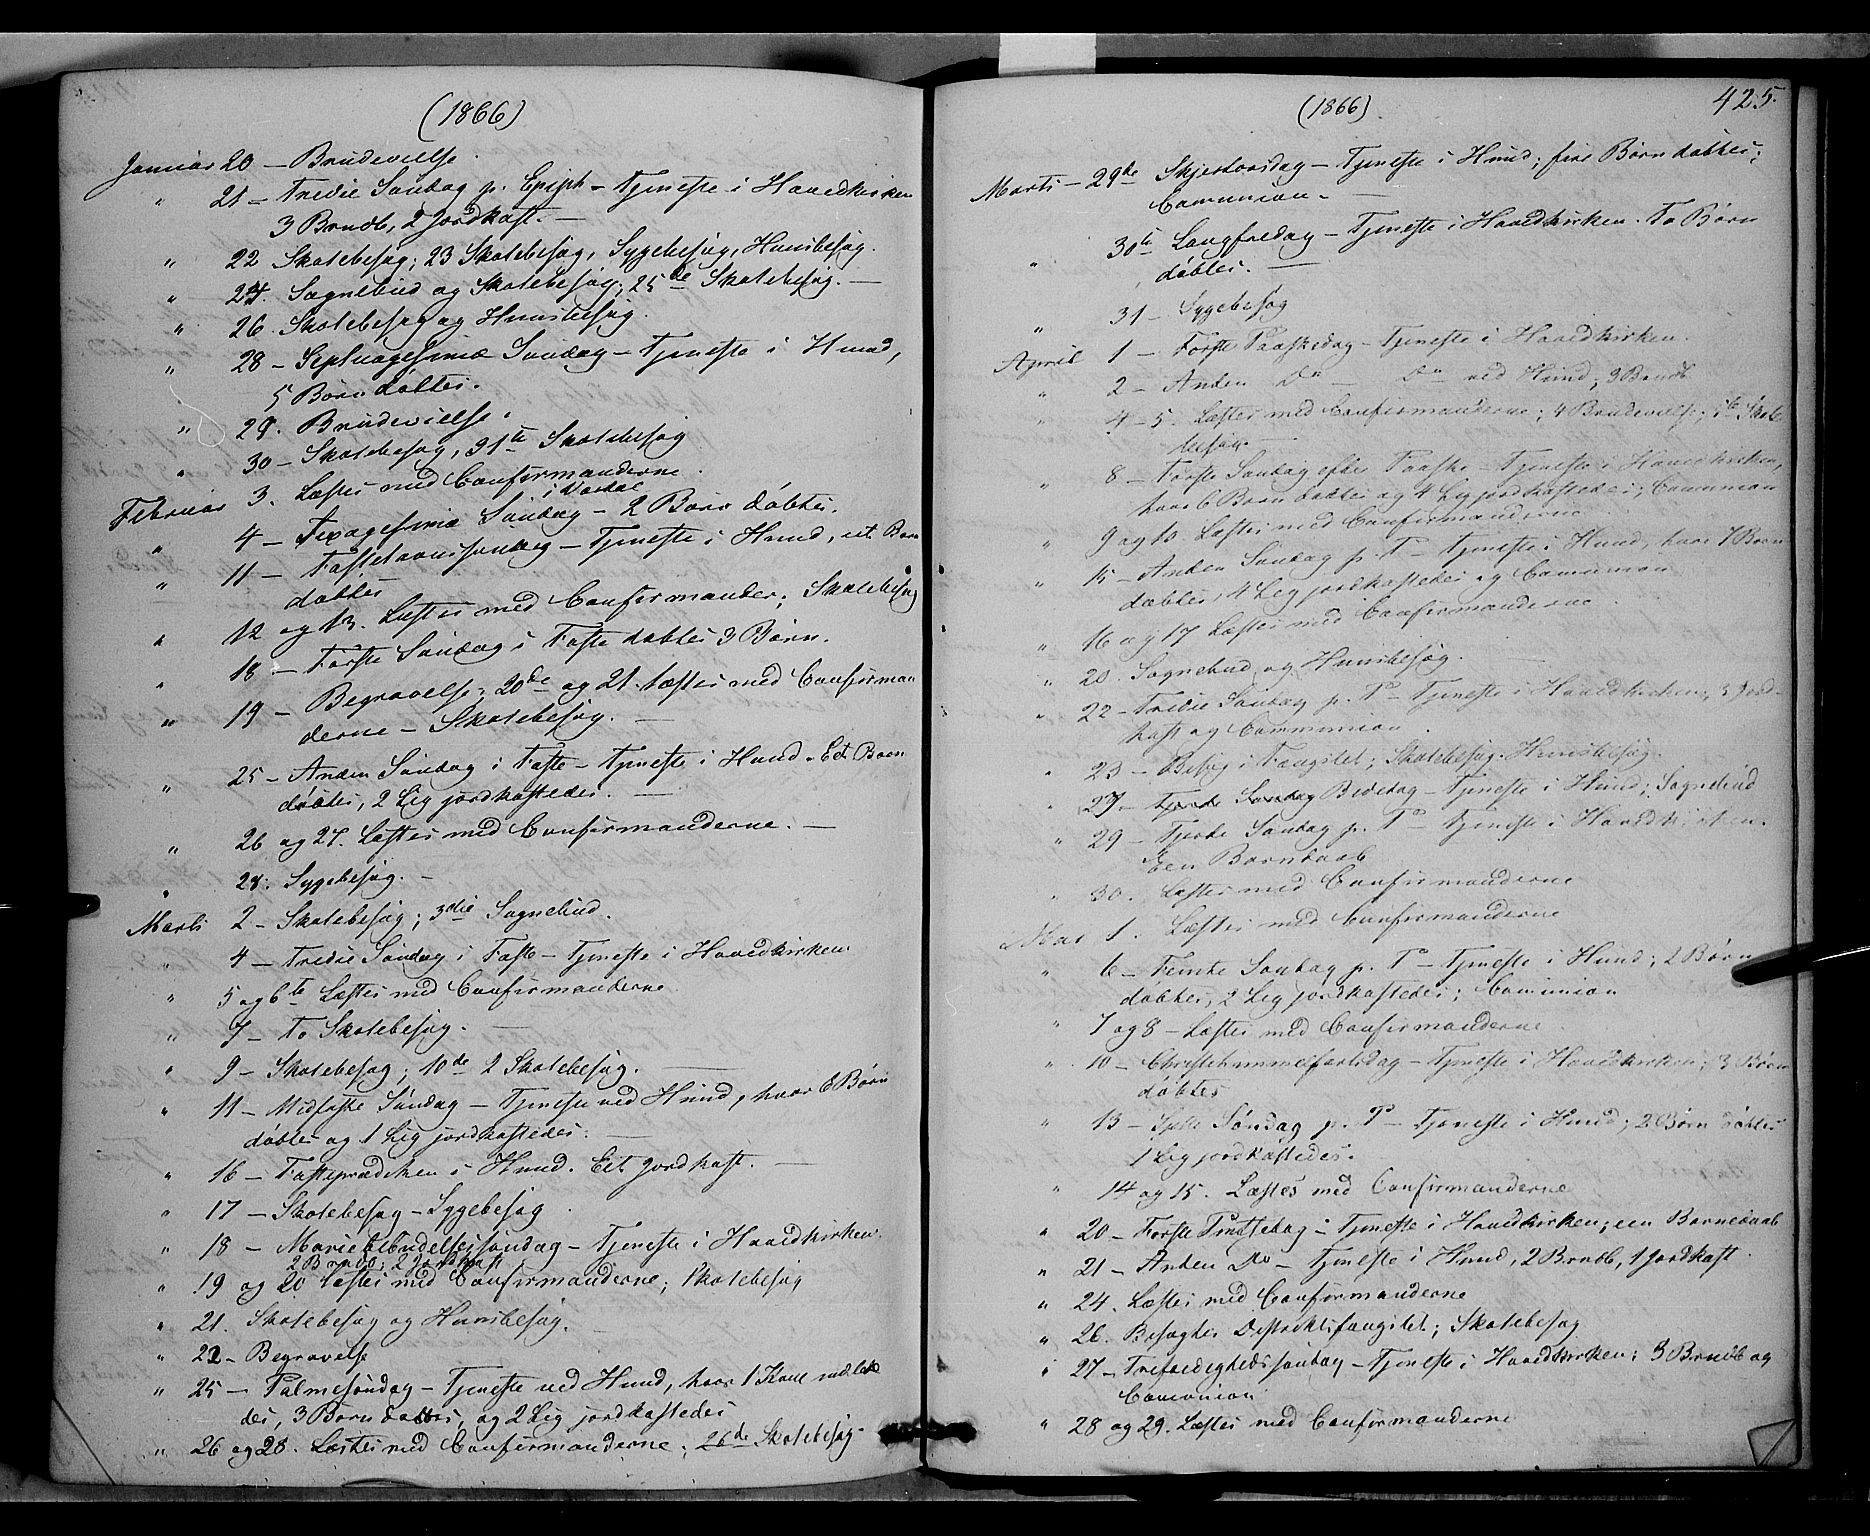 (1866)
Januar 20 — Brudevielse.
" 21 — Tredie Søndag p. Epiph — Tjeneste i Hovedkirken
3 Brndb, 2 Jordkast. —
" 22 Skolebesøg; 23 Skolebesøg, Sygebesøg, Huusbesøg.
" 24. Sognebud og Skolebesøg; 25de Skolebesøg. —
" 26. Skolebesøg og Huusbesøg.
" 28 — Septuagesimæ Søndag — Tjeneste i Hund,
5 Børn døbtes.
" 29. Brudevielse.
" 30 — Skolebesøg, 31te Skolebesøg
Februar 3. Læstes med Confirmanderne.
" 4 — Sexagesimæ Søndag i Vardal — 2 Børn døbtes.
" 11 — Fastelavnssøndag — Tjeneste i Hund, et Barn
døbtes
" 12 og 13. Læstes med Confirmander; Skolebesøg
" 18 — Første Søndag i Faste døbtes 3 Børn.
" 19 — Begravelse; 20de og 21. læstes med Confirman
derne — Skolebesøg. —
" 25 — Anden Søndag i Faste — Tjeneste i Hund. Eet Barn
døbtes, 2 Lig jordkastedes. —
" 26 og 27. Læstes med Confirmanderne. —
" 28. Sygebesøg. —
Marts 2 — Skolebesøg; 3die Sognebud.
" 4 — Tredie Søndag i Faste — Tjeneste i Hovedkirken
" 5 og 6te Læstes med Confirmanderne
" 7 — To Skolebesøg. —
" 9 — Skolebesøg; 10de 2 Skolebesøg. —
" 11 — Midfaste Søndag — Tjeneste ved Hund, hvor 6 Børn
døbtes og 1 Lig jordkastedes. —
" 16 — Fasteprædiken i Hund. Eet Jordkast. —
" 17 — Skolebesøg — Sygebesøg.
" 18 — Mariæ Bebudelsessøndag — Tjeneste i Hovedkirken.
2 Brndb; 2 Jordkast
" 19 og 20 læstes med Confirmanderne; Skolebesøg
" 21. Skolebesøg og Huusbesøg.
" 22 — Begravelse
" 25 — Palmesøndag — Tjeneste ved Hund, hvor 1 Kone indlede
des, 3 Børn døbtes, og 2 Lig jordkastedes
" 26 og 28. Læstes med Confirmanderne; 26de Skolebesøg.
(1866)
425.
Marts — 29de Skjertorsdag — Tjeneste i Hund; fire Børn døbtes;
Communion. —
" 30te Langfredag — Tjeneste i Hovedkirken. To Børn
døbtes. —
" 31 — Sygebesøg
April 1 — Første Paaskedag — Tjeneste i Hovedkirken.
" 2 — Anden Do — Do ved Hund; 3 Brndb
" 4 — 5. Læstes med Confirmanderne; 4 Brudevielse; 5te Skole
besøg. —
" 8 — Første Søndag efter Paaske — Tjeneste i Hovedkirken,
hvor 6 Børn døbtes og 4 Lig jordkastedes; Communion
" 9 og 10 Læstes med Confirmanderne
" 15 — Anden Søndag p. P — Tjeneste i Hund, hvor 7 Børn
døbtes, 4 Lig jordkastedes og Communion
" 16 og 17 Læstes med Confirmanderne.
" 20. Sognebud og Huusbesøg.
" 22 — Tredie Søndag p. P — Tjeneste i Hovedkirken; 3 Jord-
kast og Communion.
" 23 — Besøg i Fængslet; Skolebesøg. Huusbesøg.
" 27. — Fjerde Søndag Bededag — Tjeneste i Hund; Sognebud
" 29 — Fjerde Søndag p. P — Tjeneste i Hovedkirken.
Een Barnedaab
" 30. Læstes med Confirmanderne
Mai 1. Læstes med Confirmanderne
" 6 — Femte Søndag p. P — Tjeneste i Hund; 2 Børn
døbtes, 2 Lig jordkastedes; Communion
" 7 og 8 — Læstes med Confirmanderne
" 10 — Christihimmelfartsdag — Tjeneste i Hovedkirken; 3 Børn
døbtes
" 13 — Sjette Søndag p. P — Tjeneste i Hund; 2 Børn døbtes
1 Lig jordkastedes.
" 14 og 15. Læstes med Confirmanderne
" 20 — Første Pintsedag — Tjeneste i Hovedkirken; een Barnedaab
" 21 — Anden Do — Tjeneste i Hund, 2 Brndb, 1 Jordkast
" 24. Læstes med Confirmanderne
" 26. Besøgtes Distriktsfængslet; Skolebesøg
" 27 — Trefoldighedssøndag — Tjeneste i Hovedkirken; 3 Brndb og
Communion
" 28 og 29. Læstes med Confirmanderne